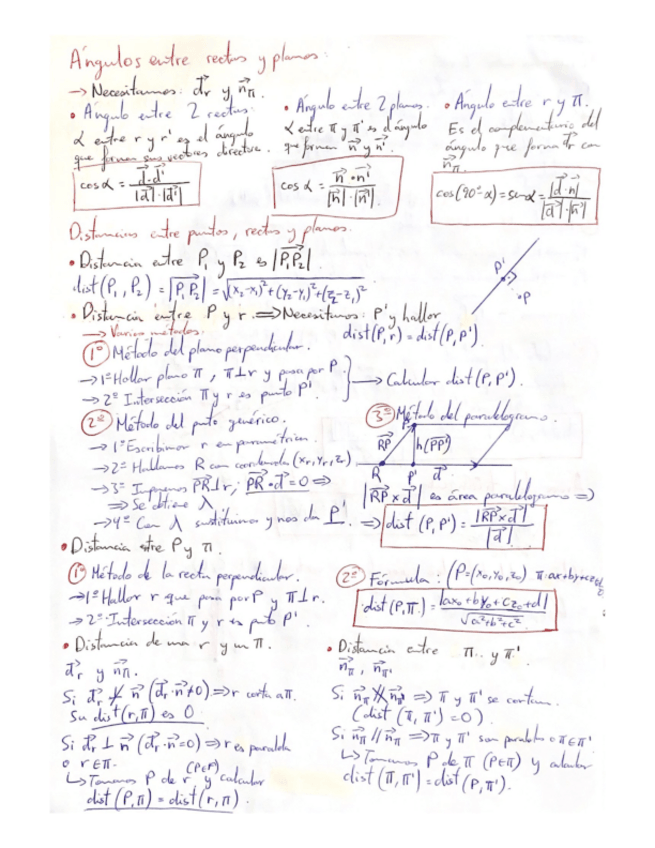 Ángulos entre rectas y planos:
→ Necesitamos: d⃗r y n⃗π.
• Ángulo entre 2 rectas:
α entre r y r' es el ángulo
que forman sus vectores directores.
cos α = d⃗·d⃗' / |d⃗|·|d⃗'|
• Ángulo entre 2 planos.
α entre π y π' es el ángulo
que forman n⃗ y n⃗'.
cos α = n⃗·n⃗' / |n⃗|·|n⃗'|
• Ángulo entre r y π.
Es el complementario del
ángulo que forma d⃗r con
n⃗π.
cos(90º-α) = sen α = |d⃗·n⃗| / |d⃗|·|n⃗|
Distancias entre puntos, rectas y planos.
• Distancia entre P₁ y P₂ es |P₁P₂|.
dist(P₁, P₂) = |P₁P₂| = √(x₂-x₁)²+(y₂-y₁)²+(z₂-z₁)²
P'
P
• Distancia entre P y r. ⟹ Necesitamos: P' y hallar
dist(P,r) = dist(P,P').
→ Varios métodos.
1º Método del plano perpendicular.
→ 1º Hallar plano π, π⊥r y pasa por P.
→ 2º Intersección π y r es punto P'.
→ Calcular dist(P,P').
2º Método del punto genérico.
→ 1º Escribimos r en paramétricas.
→ 2º Hallamos R con coordenadas (xr, yr, zr)
→ 3º Imponemos PR⊥r, PR·d⃗=0 ⟹
⟹ Se obtiene λ
→ 4º Con λ sustituimos y nos da P'.
3º Método del paralelogramo.
P
RP
h(PP')
R P' d⃗
|RP×d⃗| es área paralelogramo ⟹
⟹ dist(P,P') = |RP×d⃗| / |d⃗|
• Distancia entre P y π.
1º Método de la recta perpendicular.
→ 1º Hallar r que pasa por P y π⊥r.
→ 2º Intersección π y r es pto P'
2º Fórmula: (P=(x₀,y₀,z₀) π:ax+by+cz
dist(P,π) = |ax₀+by₀+cz₀+d| / √a²+b²+c²
• Distancia de una r y un π.
d⃗r y n⃗π.
Si d⃗r ⊥̸ n⃗ (d⃗r·n⃗≠0) ⟹ r corta a π.
Su dist(r,π) es 0.
Si d⃗r ⊥ n⃗ (d⃗r·n⃗=0) ⟹ r es paralela
o r∈π.
↳ Tomamos P de r (P∈r) y calcular
dist(P,π) = dist(r,π).
• Distancia entre π y π'
n⃗π, n⃗π'
Si n⃗π ∦ n⃗π' ⟹ π y π' se cortan.
(dist(π,π')=0).
Si n⃗π // n⃗π' ⟹ π y π' son paralelos o π∈π'
↳ Tomamos P de π (P∈π) y calcular
dist(π,π') = dist(P,π').